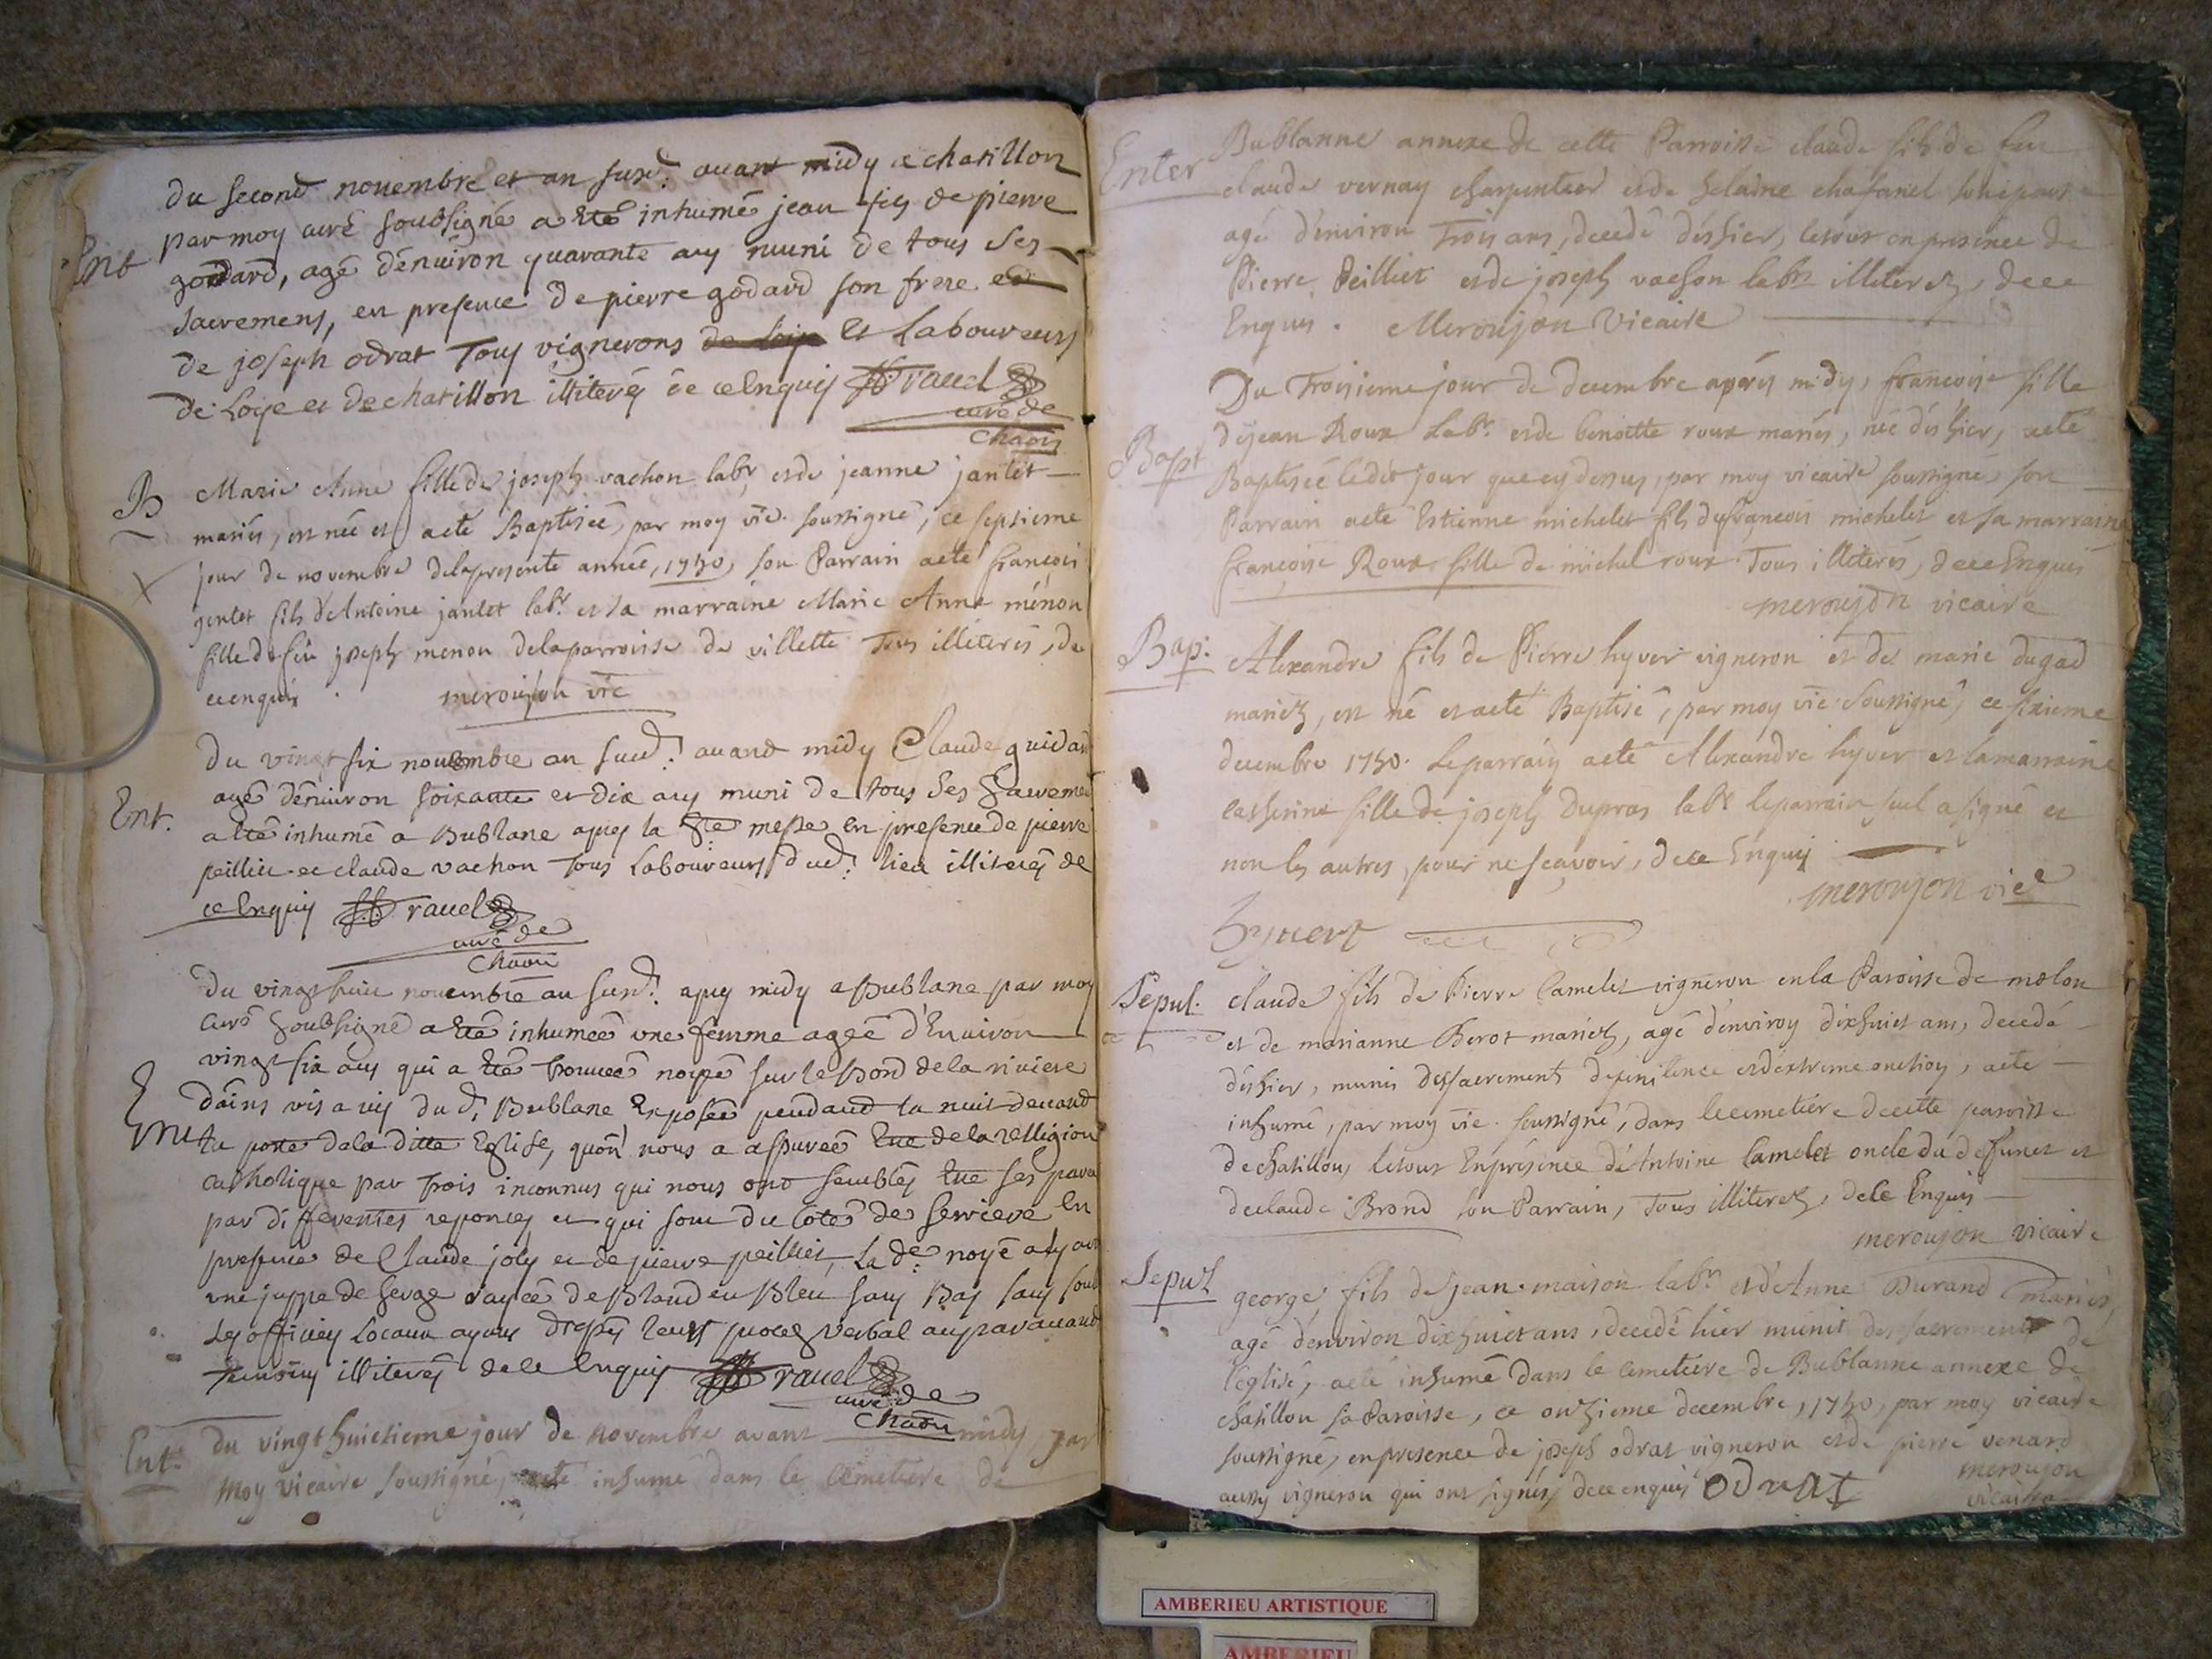 du second novembre et an susd. avant midy a chatillon
par moy curé soubsigné a été inhumé jean fils de pierre
Ent
godard, agé dénuiron quarante ans muni de tous ses
sacremens, en presence de pierre godard son frere et
de joseph odrat Tous vignerons et Laboureurs
de Loye et de chatillon illiterés de ce Enquis ravel
curé de
Chaon
B Marie Anne fille de joseph vachon labr et de jeanne jantet
mariés, est née et a eté Baptisée, par moy vic. soussigné, ce septieme
jour de novembre de la presente année, 1750, son Parrain a eté francois
jentet fils d'Antoine jantet labr. et sa marraine Marie Anne ménon
fille de feu joseph menon de la parroisse de villette Tous illiterés, de
ce enquis. meroujon vic
du vingt six novembre an susd. avant midy Claude guidan
Ent. agé dénuiron soixante et dix ans muni de tous ses sacremens
a été inhumé a Bublane apres la Ste messe en presence de pierre
peillier et claude vachon Tous Laboureurs dud. lieu illiterés de
ce Enquis ravel
curé de
Chaon
du vingt huit novembre an susd. apres midy a Bublane par moy
curé soubsigné a été inhumée une femme agée d'Enuiron
vingt six ans qui a été trouuée noiyé sur le Bord de la riviere
Ent
dains vis a vis du d. Bublane Exposée pendant la nuit devant
la porte de la ditte Eglise, quon nous a assurée Etre de la relligion
catholique par trois inconnus qui nous ont semblés Etre ses
par differentes reponces et qui sont du coté de serriere En
presence de Claude joly et de pierre peillier, La de. noyé
une juppe de serge rayée de Bland en Bleu sans Bas sans
Les officiers Locaux ayant leurs proces verbal auparavant
temoins illiterés de ce Enquis ravel
curé de
Chaon
Ent. du vingt huictieme jour de novembre avant midy, par
moy vicaire soussigné, a eté inhumé dans le cemetiere de
Enter Bublanne annexe de cette Parroisse claude fils de feu
claude vernay charpentier et de helaine chafanel
agé d'environ Trois ans, decedé dès hier, le tout en presence de
Pierre Peillier et de joseph vachon labr. illiterez, de ce
Enquis. Meroujon Vicaire
Du Troisieme jour de decembre après midy, francoise fille
de jean Roux Labr. et de benoitte roux mariés, née dès hier, a eté
Bapt
Baptisée le dit jour que cy dessus, par moy vicaire soussigné, son
Parrain a eté Estienne michelet fils de francois michelet et sa marraine
francoise Roux fille de michel roux Tous illiterés, de ce Enquis
meroujon vicaire
Bap. Alexandre fils de Pierre hyver vigneron et de marie dugad
mariez, est né et a eté Baptisé, par moy vic. soussigné, ce sixieme
decembre 1750. Le parrain a eté Alexandre hyver et la marraine
catherine fille de joseph Dupras labr. le parrain seul a signé et
non les autres, pour ne sçavoir, de ce Enquis
meroujon vice
hyvert
Sepul. claude fils de Pierre Camelet vigneron en la Paroisse de molon
et de marianne Berot mariez, agé denviron dixhuict ans, decedé
dès hier, munis des sacrements de penitence et dextreme onction, a eté
inhumé, par moy vic. soussigné, dans le cemetiere de cette paroisse
de chatillon, le tout En présence de Antoine Camelet oncle du deffunct et
de claude Brond son Parrain, Tous illiterez, de ce Enquis
meroujon vicaire
Sepul george fils de jean maison labr. et d'Anne Durand mariés
agé denviron dixhuict ans, decedé hier munit des sacrements de
l'eglise, a eté inhumé dans le cemetiere de Bublanne annexe de
chatillon sa Paroisse, ce onzieme decembre, 1750, par moy vicaire
soussigné, en presence de joseph odrat vigneron et de pierre venard
aussy vigneron qui ont signés de ce enquis odrat
meroujon
vicaire
AMBERIEU ARTISTIQUE
AMBERIEU